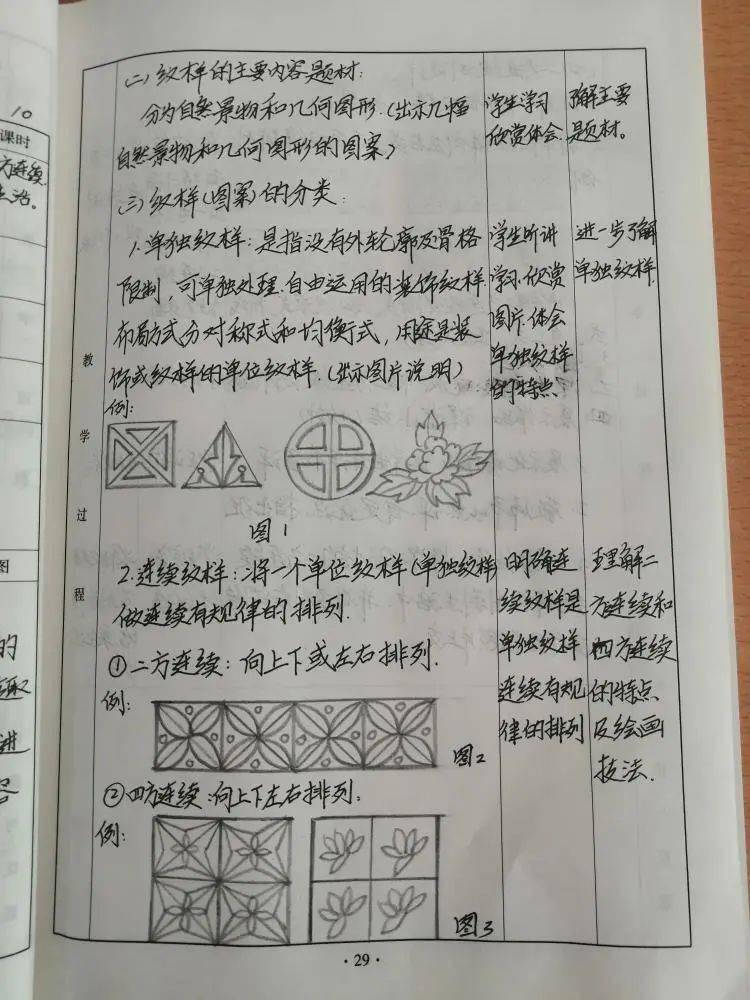 10
课时
方连续.
生活。
图
的
趣
进
容
教
学
过
程
(二)纹样的主要内容题材:
分为自然景物和几何图形.(出示几幅
自然景物和几何图形的图案)
(三)纹样(图案)的分类:
1.单独纹样:是指没有外轮廓及骨格
限制,可单独处理.自由运用的装饰纹样.
布局方式分对称式和均衡式,用途是装
饰或纹样的单位纹样.(出示图片说明)
例:
图1
2.连续纹样:将一个单位纹样(单独纹样)
做连续有规律的排列.
①二方连续:向上下或左右排列.
例:
图2
②四方连续:向上下左右排列.
例:
图3
学生学习
欣赏体会.
学生听讲
学习.欣赏
图片.体会
单独纹样
的特点.
明确连
续纹样是
单独纹样
连续有规
律的排列
了解主要
题材。
进一步了解
单独纹样.
理解二
方连续和
四方连续
的特点
及绘画
技法.
· 29 ·